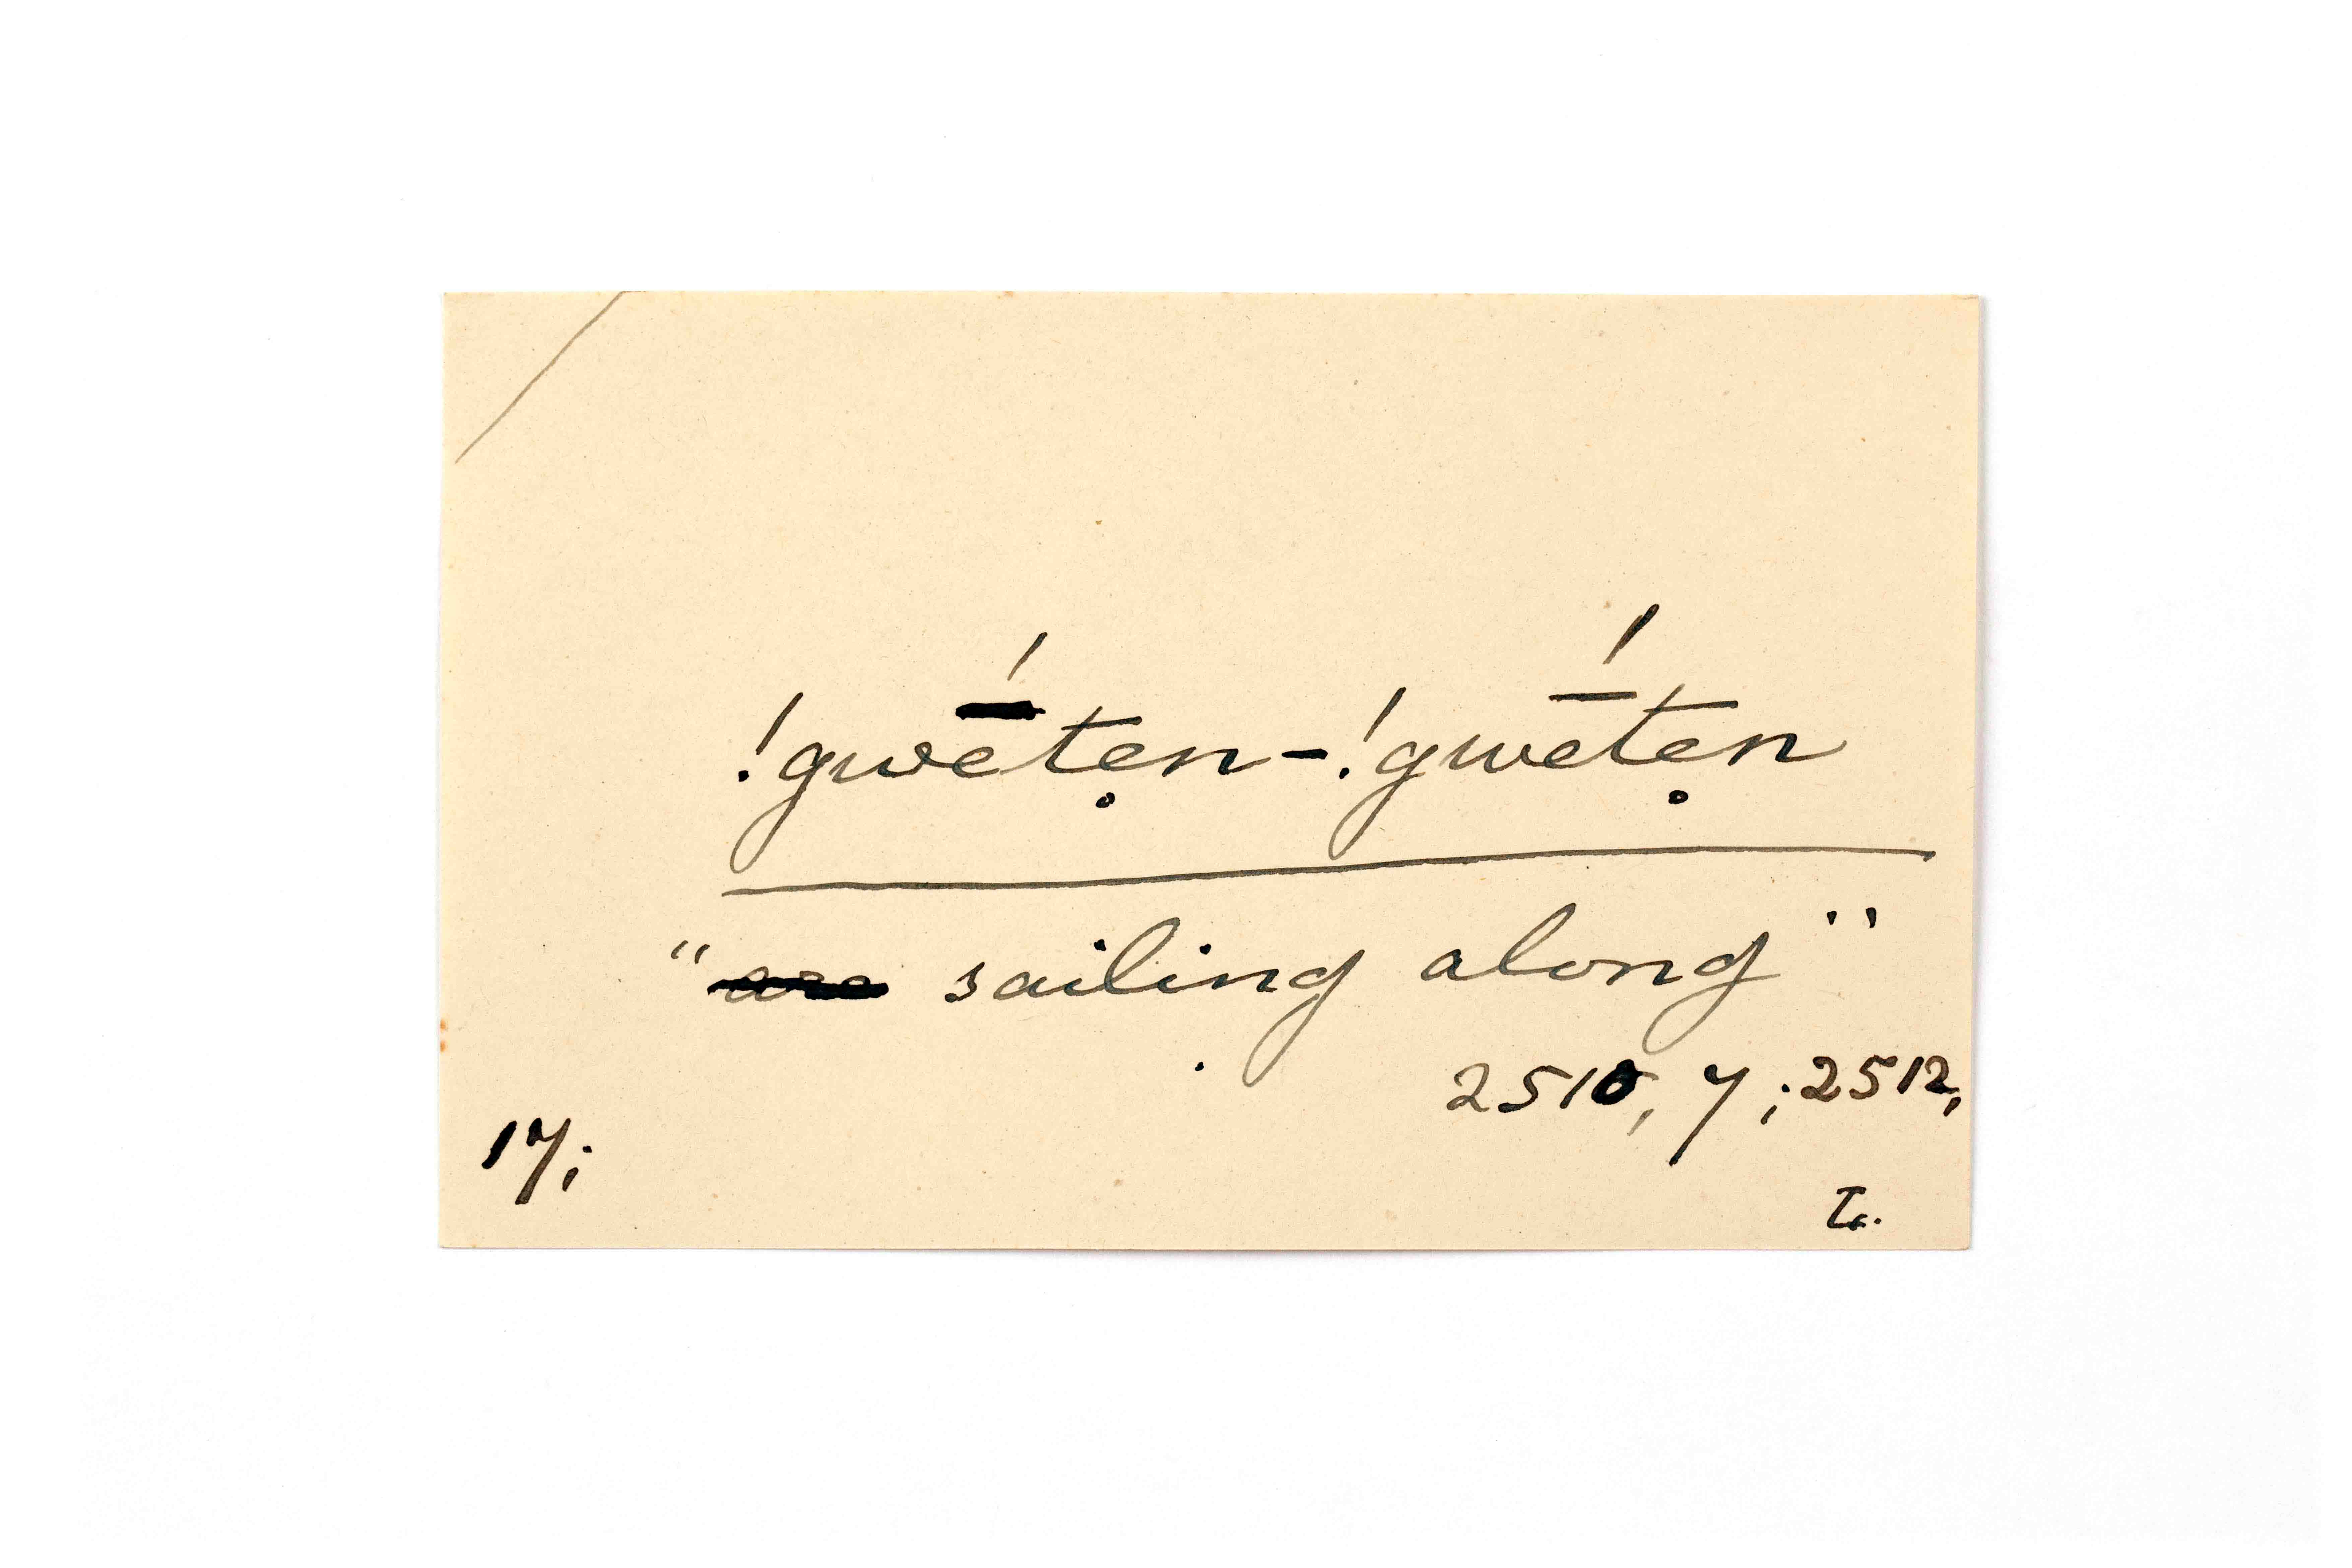 !gwḗtẹn-!gwḗtẹn
"are sailing along"
2510, 7; 2512,
17;
L.